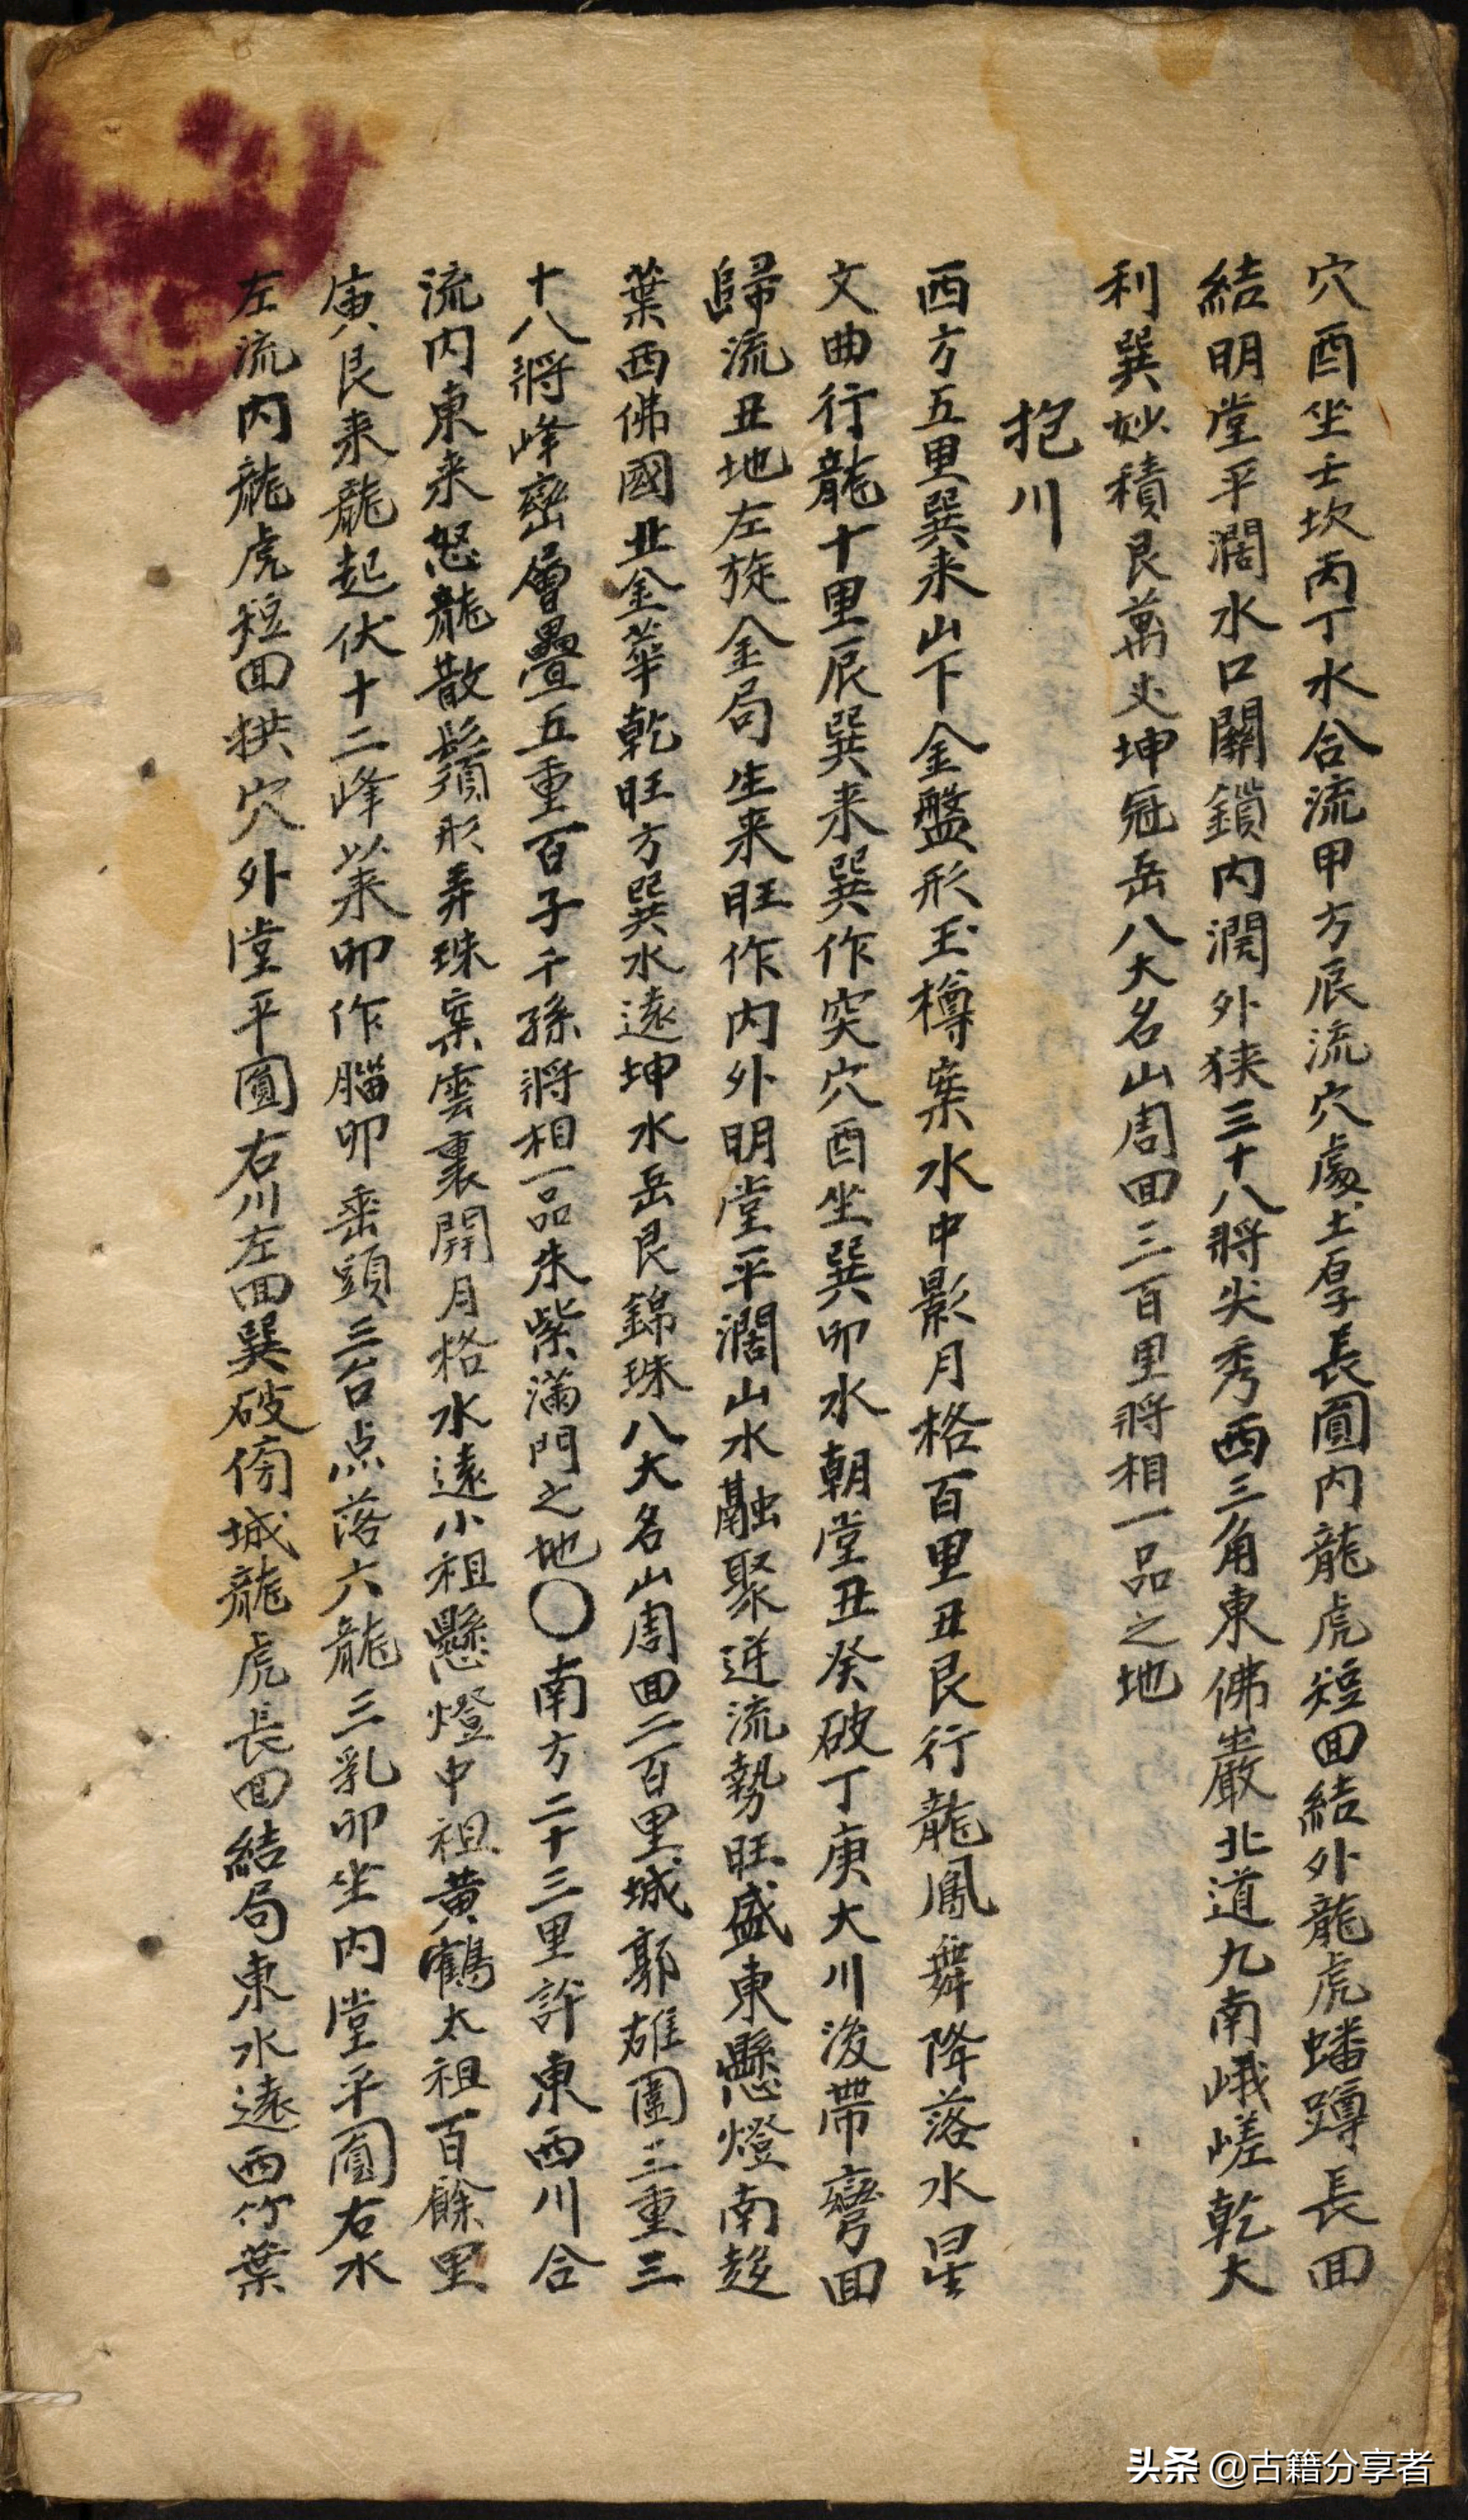 穴酉坐壬坎丙丁水合流甲方辰流穴處土厚長圓内龍虎短回結外龍虎蟠蹲長回
結明堂平濶水口關鎖内濶外狭三十八將尖秀西三角東佛巖北道九南峨嵯乾大
利巽妙積艮萬丈坤冠岳八大名山周回三百里將相一品之地
抱川
西方五里巽来山下金盤形玉樽案水中影月格百里丑艮行龍鳳舞降落水星
文曲行龍十里辰巽来巽作突穴酉坐巽卯水朝堂丑癸破丁庚大川後帶彎回
歸流丑地左旋金局生来旺作内外明堂平濶山水融聚逆流勢旺盛東懸燈南趍
葉西佛國北金華乾旺方巽水遠坤水岳艮錦珠八大名山周回二百里城郭雄圍三重三
十八將峰巒層疊五重百子千孫將相一品朱紫滿門之地〇南方二十三里許東西川合
流内東来怒龍散鬚形弄珠案雲裏開月格水遠小祖懸燈中祖黄鶴太祖百餘里
庚艮来龍起伏十二峰業卯作腦卯垂頭三台点落六龍三乳卯坐内堂平圓右水
左流内龍虎短回拱穴外堂平圓右川左回巽破傍城龍虎長回結局東水遠西竹葉
头条 @古籍分享者